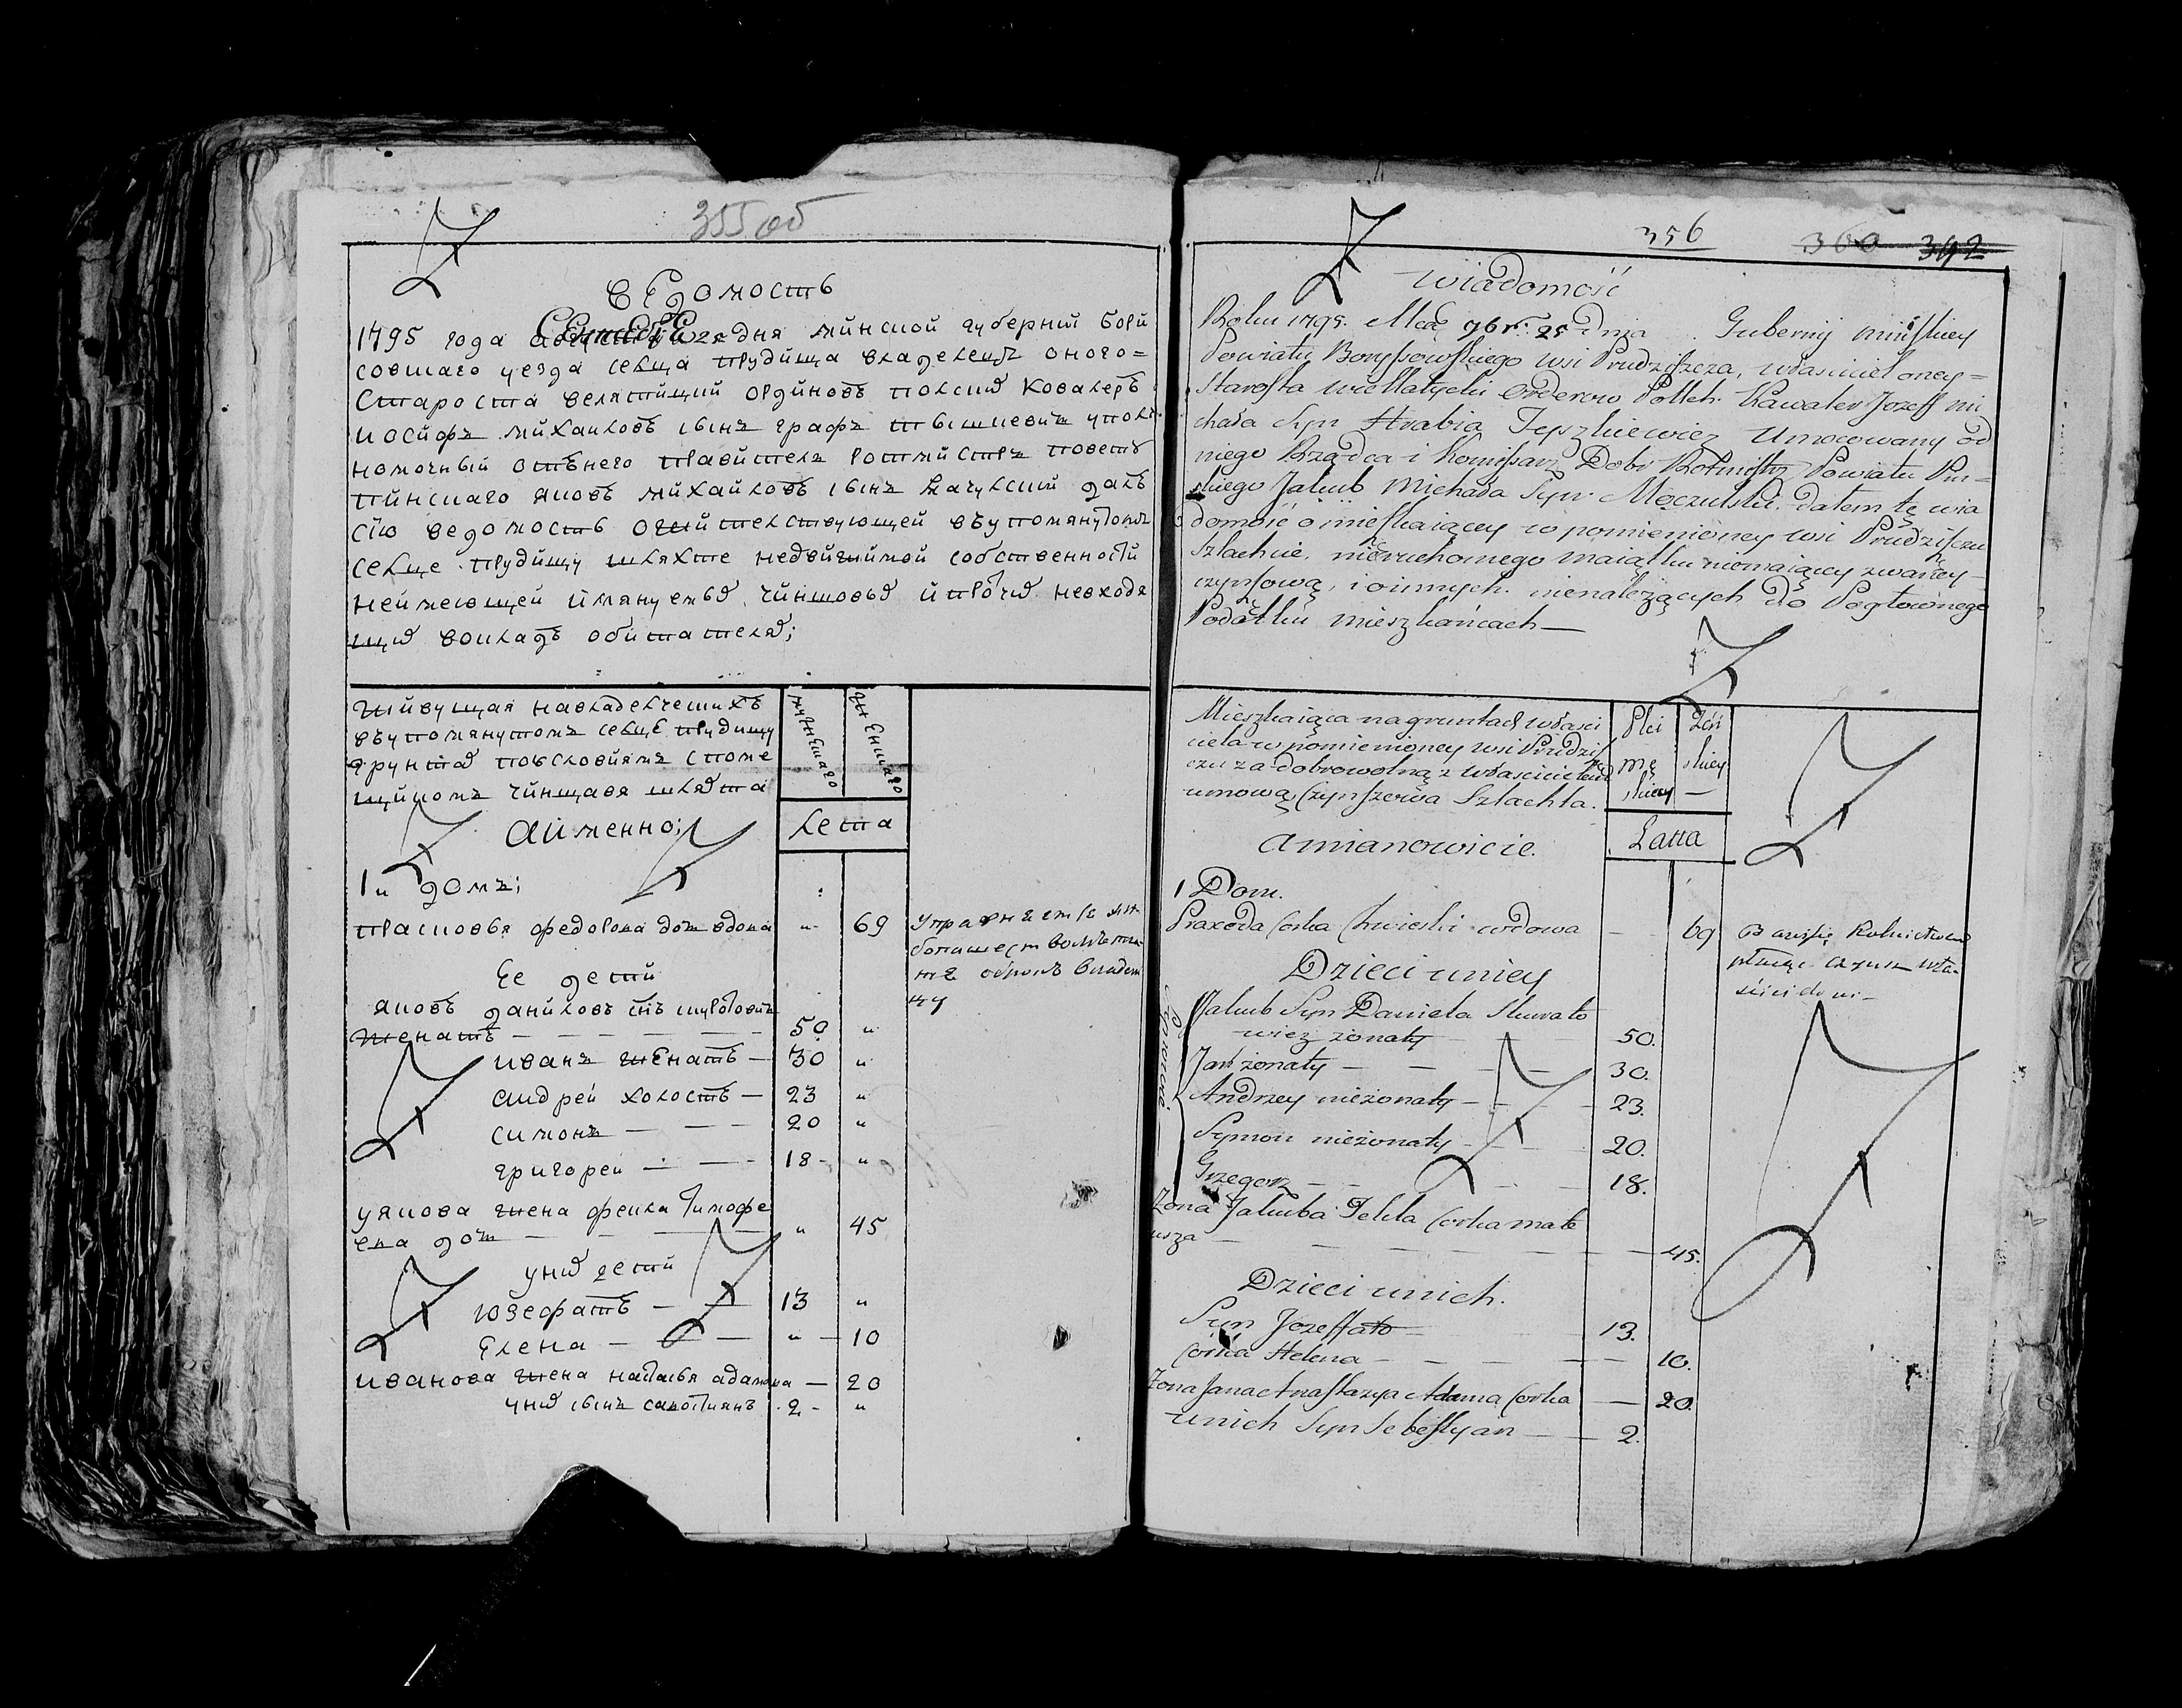 355 об
Ведомость
1795 года Сентебря дня минской губернии бори
совшаго уезда селца прудища владелецъ оного=
Староста велятицкий ординовъ полских Ковалеръ
иосифъ михаиловъ сынъ графъ тышкевичъ упол
номочный отънего правитель ротмистръ повету
пинскаго яковъ михайловъ сынъ мачулский далъ
сию ведомость ожителствующей въупомянутомъ
селце прудищу шляхте недвижимой собственности
неймеющей имянуемых чиншовых ипрочих невходя
щих вокладъ обитателях;
живущая навладелческихъ
въупомянутомъ селце прудищу
грунтах поусловиямъ споме
щикомъ чиншавя шляхта
аименно;
мужескаго
женскаго
Лета
1и домъ;
прасковья федорова доч вдова " 69
Ее дети
яковъ даниловъ снъ шуротовичъ
женатъ 50 "
иванъ женатъ 30 "
андрей холостъ 23 "
симонъ 20 "
григорей 18 "
уякова жена фекла Тимофе
ева доч " 45
уних дети
юзефатъ 13 "
Елена " 10
иванова жена настасья адамова 20
уних сынъ савостиянъ 2 "
356 360 342
Wiadomość
Roku 1795. Mca 9br: 25 dnia Gubernij minskiey
Powiatu Boryssowskiego wsi Prudziszcza, właściciel oney=
Starosta wiellatycki Orderow Polkch. Kawaler Jozeff mi
chała Syn Hrabia Tyszkiewicz Umocowany od
niego Rządca i Komisarz Dobr Rotmistrz Powiatu Pin=
skiego Jakub Michała Syn Męczulski. dałem tę wia
domość o mieszkaiącey w pomienioney wsi Prudziszczu
Szlachcie, nieruchomego maiątku niemaiącey zwaney
czynszową, i o innych nienależących do Pogłownego
Podatku mieszkańcach —
Mieszkaiąca na gruntach właści
ciela w pomienioney wsi Prudzisz
czu za dobrowolną z właścicielem
umową Czynszowa Szlachta.
Płci mę skiey
Żeń skiey
Latta
a mianowicie.
1 Dom.
Praxeda Corka Chwiedki wdowa — 69
Bawi się Rolnictwem
płacąc czynsz wła-
ścicielowi —
Dzieci u niey
Synowie
Jakub Syn Daniela Skurato
wicz żonaty 50.
Jan żonaty — 30.
Andrzey nieżonaty — 23.
Symon nieżonaty 20.
Grzegorz — 18.
Żona Jakuba Tekla Corka mate
usza — 45.
Dzieci u nich.
Syn Jozeffato 13.
Corka Helena — 10.
Żona Jana Anastazya Adama Corka — 20.
u nich Syn Sebestyan — 2.